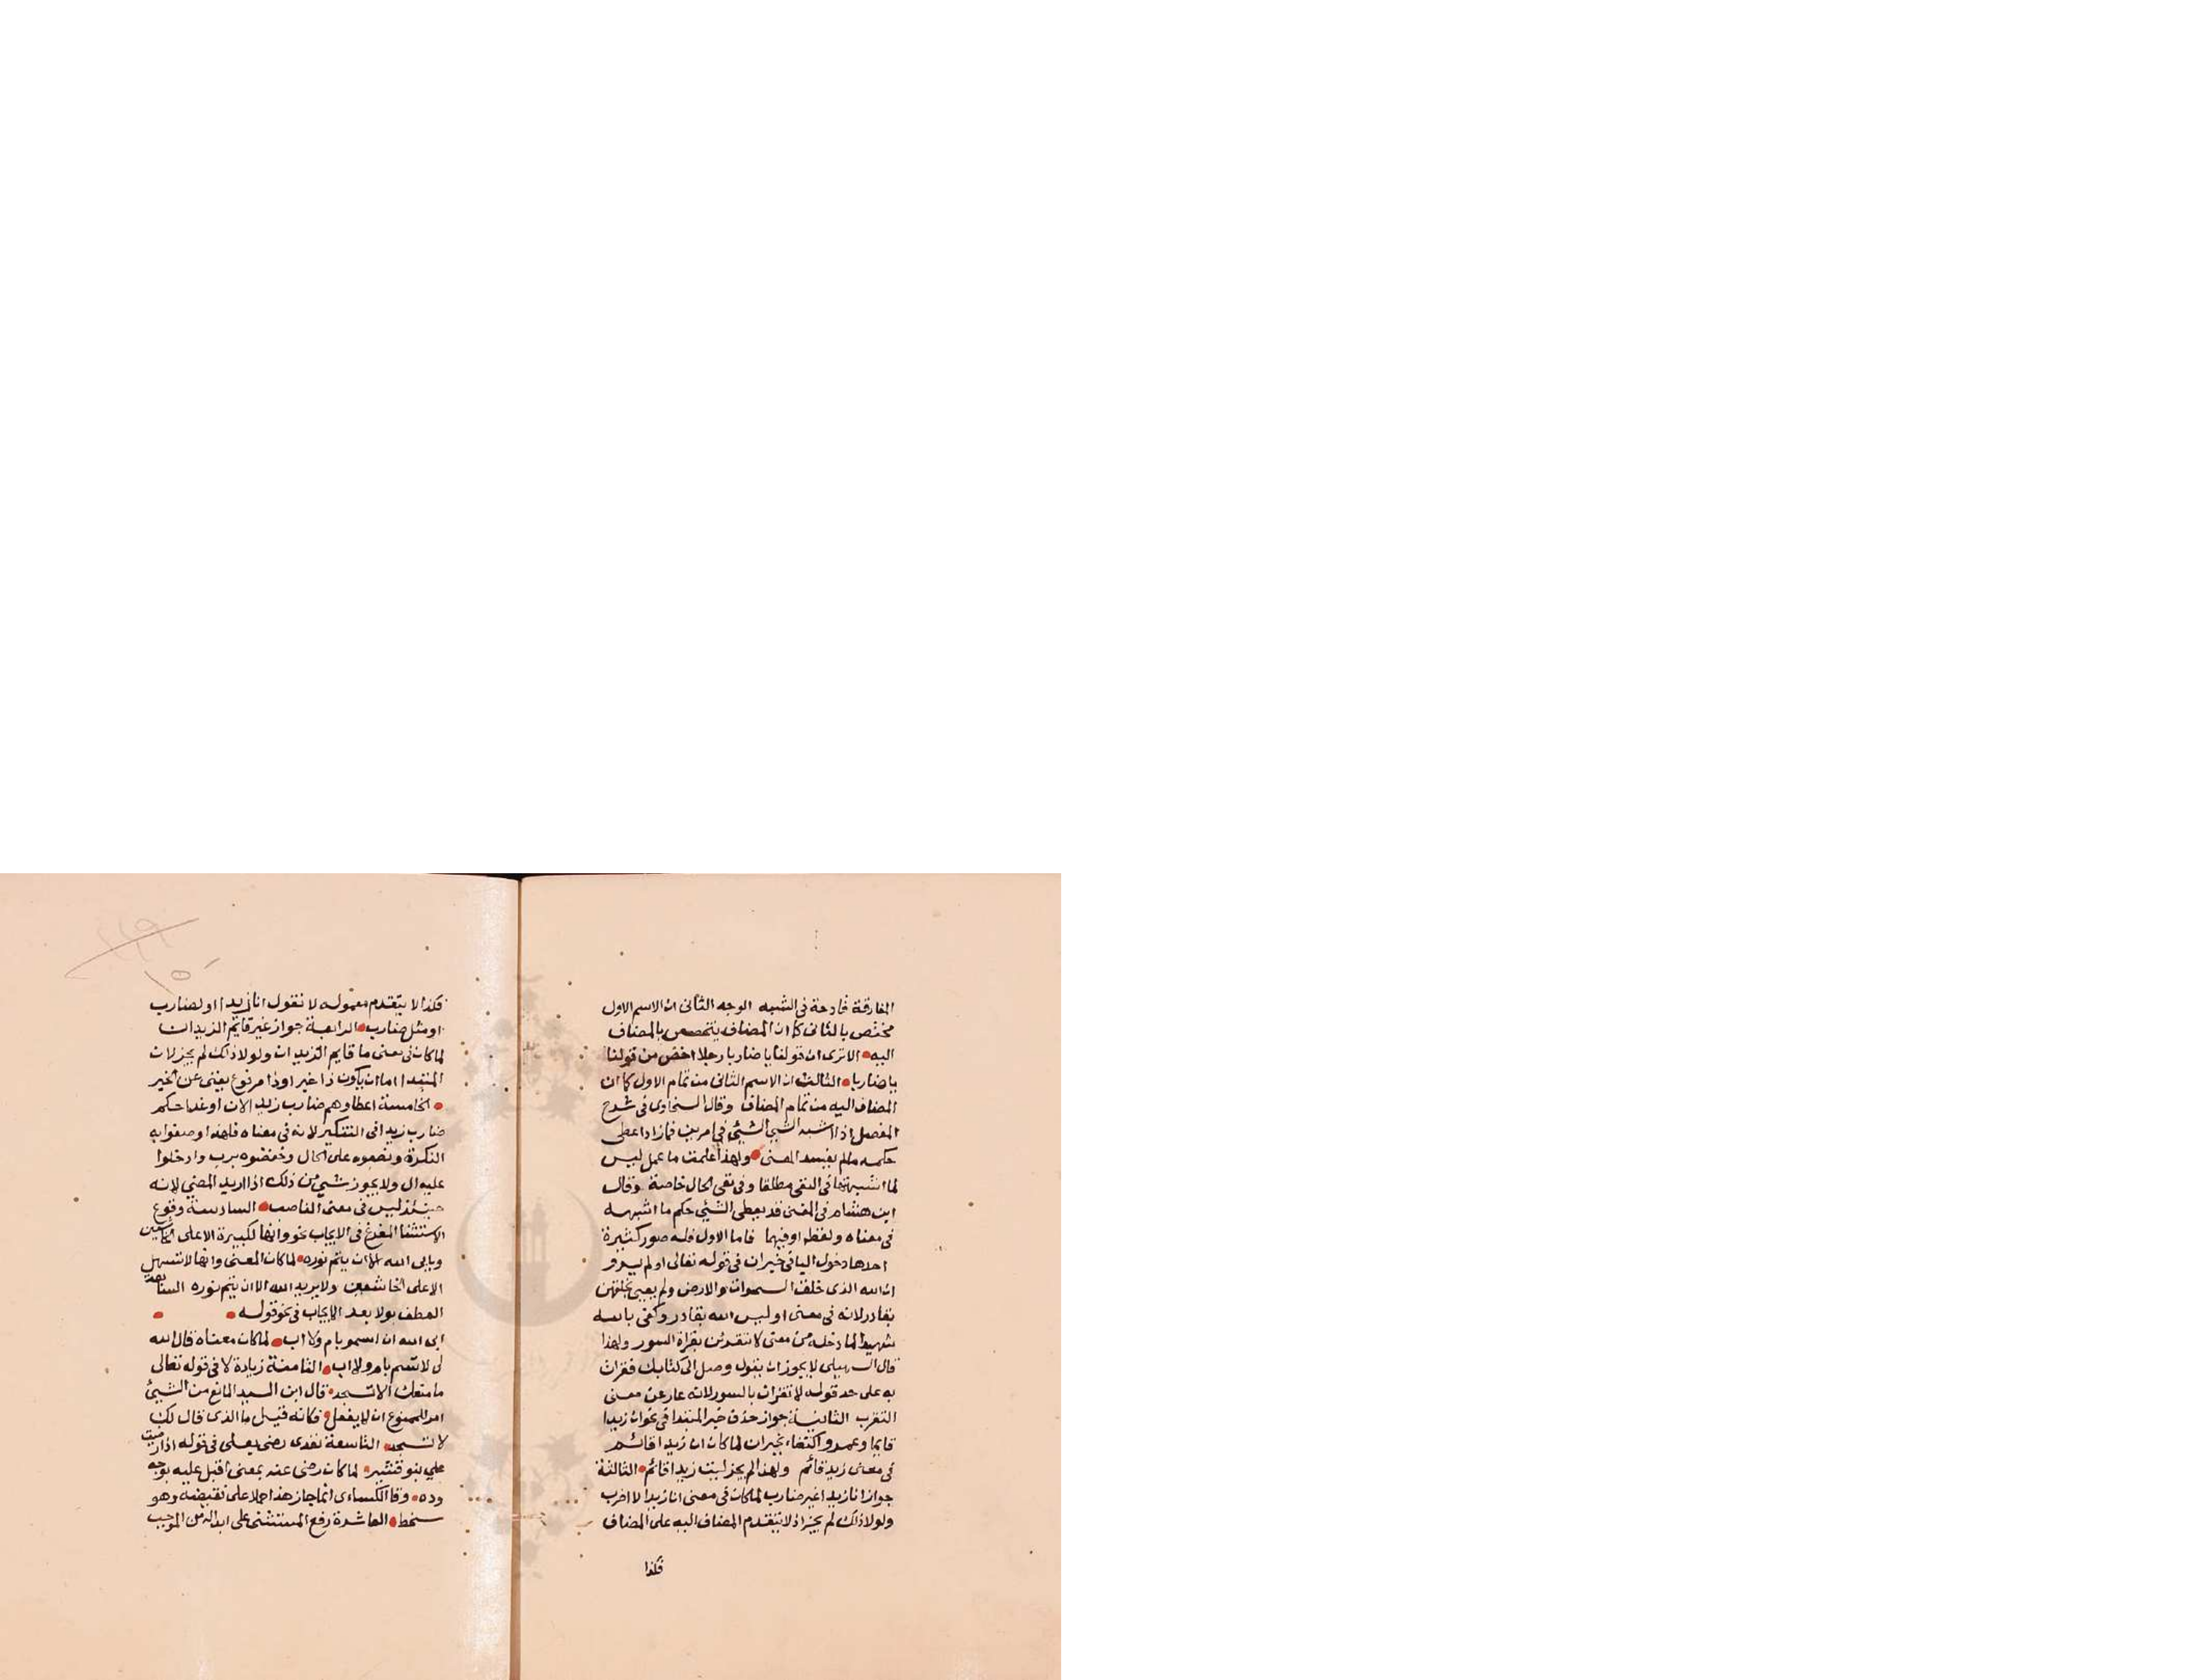 المفارقة قادحة في الشبه الوجه الثاني ان الاسم الاول
مختص بالثاني كما ان المضاف يتخصص بالمضاف
اليه الا ترى ان قولنا يا ضاربا رجلا اخص من قولنا
يا ضاربا الثالث ان الاسم الثاني من تمام الاول كما ان
المضاف اليه من تمام المضاف وقال السخاوى في شرح
المفصل اذا اشبه الشي الشي في امرين فما زاد اعطى
حكمه مالم يفسد المعنى ولهذا علمت ما عمل ليس
لما اشبهتها في النفى مطلقا وفى نفى الحال خاصة وقال
ابن هشام في المغنى قد يعطى الشي حكم ما اشبهه
في معناه و لفظه او فيهما فاما الاول فله صور كثيرة
احدها دخول البا في خبر ان في قوله تعالى اولم يرو
ان الله الذى خلق السموات والارض ولم يعيى بخلقهن
بقادر لانه في معنى اوليس الله بقادر وكفى بالله
شهيدا لما دخله من معنى لا تقرأن بقراة السور ولهذا
قال السهيلى لا يجوز ان يقول وصل الى كتابك فقرات
به على حد قوله لا تقران بالسور لانه عار عن معنى
التقرب الثانية جواز حذف خبر المبتدا في نحو ان زيدا
قايما وعمرو اكتفاء بخبر ان لما كان ان زيدا قائم
في معنى زيد قائم ولهذا لم يجز ليت زيدا قائم الثالثة
جواز انا زيدا غير ضارب لما كان في معنى انا زيدا لا اضرب
ولولا ذلك لم يجز اذ لا يتقدم المضاف اليه على المضاف
فكذا
١٥
فكذا لا يتقدم معموله لا تقول انا زيدا اول ضارب
او مثل ضارب الرابعة جواز غير قايم الزيدان
لما كان في معنى ما قايم الزيدان ولولا ذلك لم يجز لان
المبتدا اما ان يكون ذا خبر او ذا مرفوع يغنى عن الخبر
الخامسة اعطاوهم ضارب زيد الان او غدا حكم
ضارب زيدا في التنكير لانه في معناه فلهذا وصفوا به
النكرة ونصبوه على الحال وخفضوه برب وادخلوا
عليه ال ولا يجوز شي من ذلك اذا اريد المضى لانه
حينئذ ليس في معنى الناصب السادسة وقوع
الاستثنا المفرغ في الايجاب نحو وانها لكبيرة الا على الخاشعين
ويابى الله الا ان يتم نوره لما كان المعنى وانها لا تسهل
الا على الخاشعين ولا يريد الله الا ان يتم نوره السابعة
العطف بولا بعد الايجاب في نحو قوله
ابى الله ان اسمو بام ولا اب لما كان معناه قال الله
لى لا تسم بام ولا اب الثامنة زيادة لا في قوله تعالى
ما منعك الا تسجد قال ابن السيد المانع من الشيئ
امر للممنوع ان لا يفعل فكانه قيل ما الذى قال لك
لا تسجد التاسعة تعدى رضى بعلى في قوله اذا رضيت
على بنو قشير لما كان رضى عنه بمعنى اقبل عليه بوجه
وده وقال الكساءى انما جاز هذا حملا على نقيضه وهو
سخط العاشرة رفع المستثنى على ابداله من الموجب